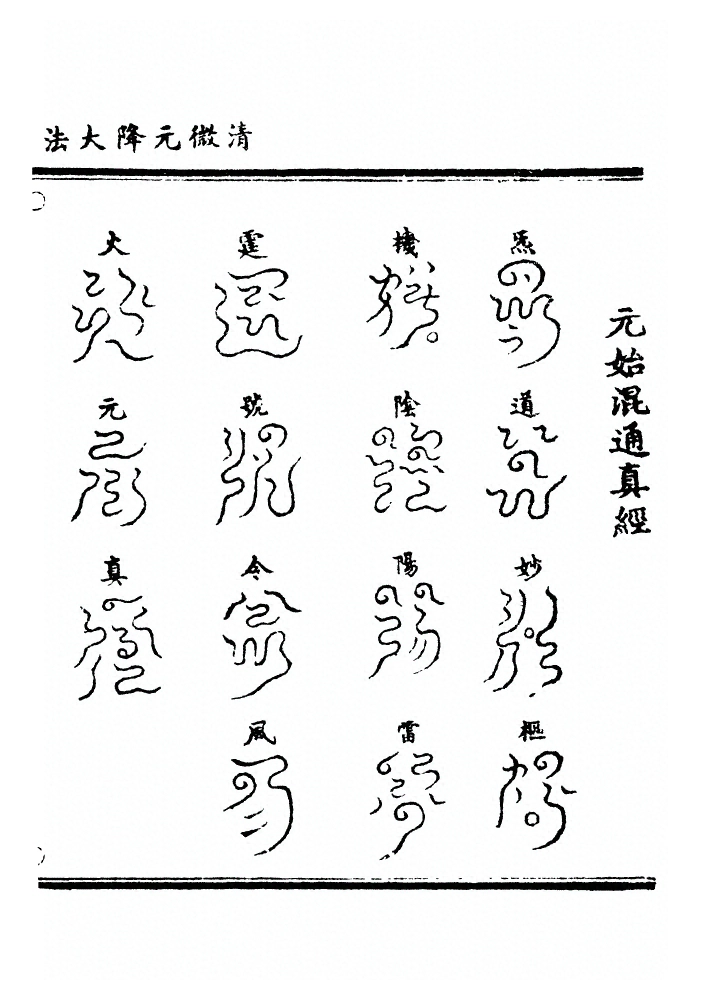 清微元降大法
元始混通真經
炁道妙樞
機陰陽雷
霆號令風
火元真